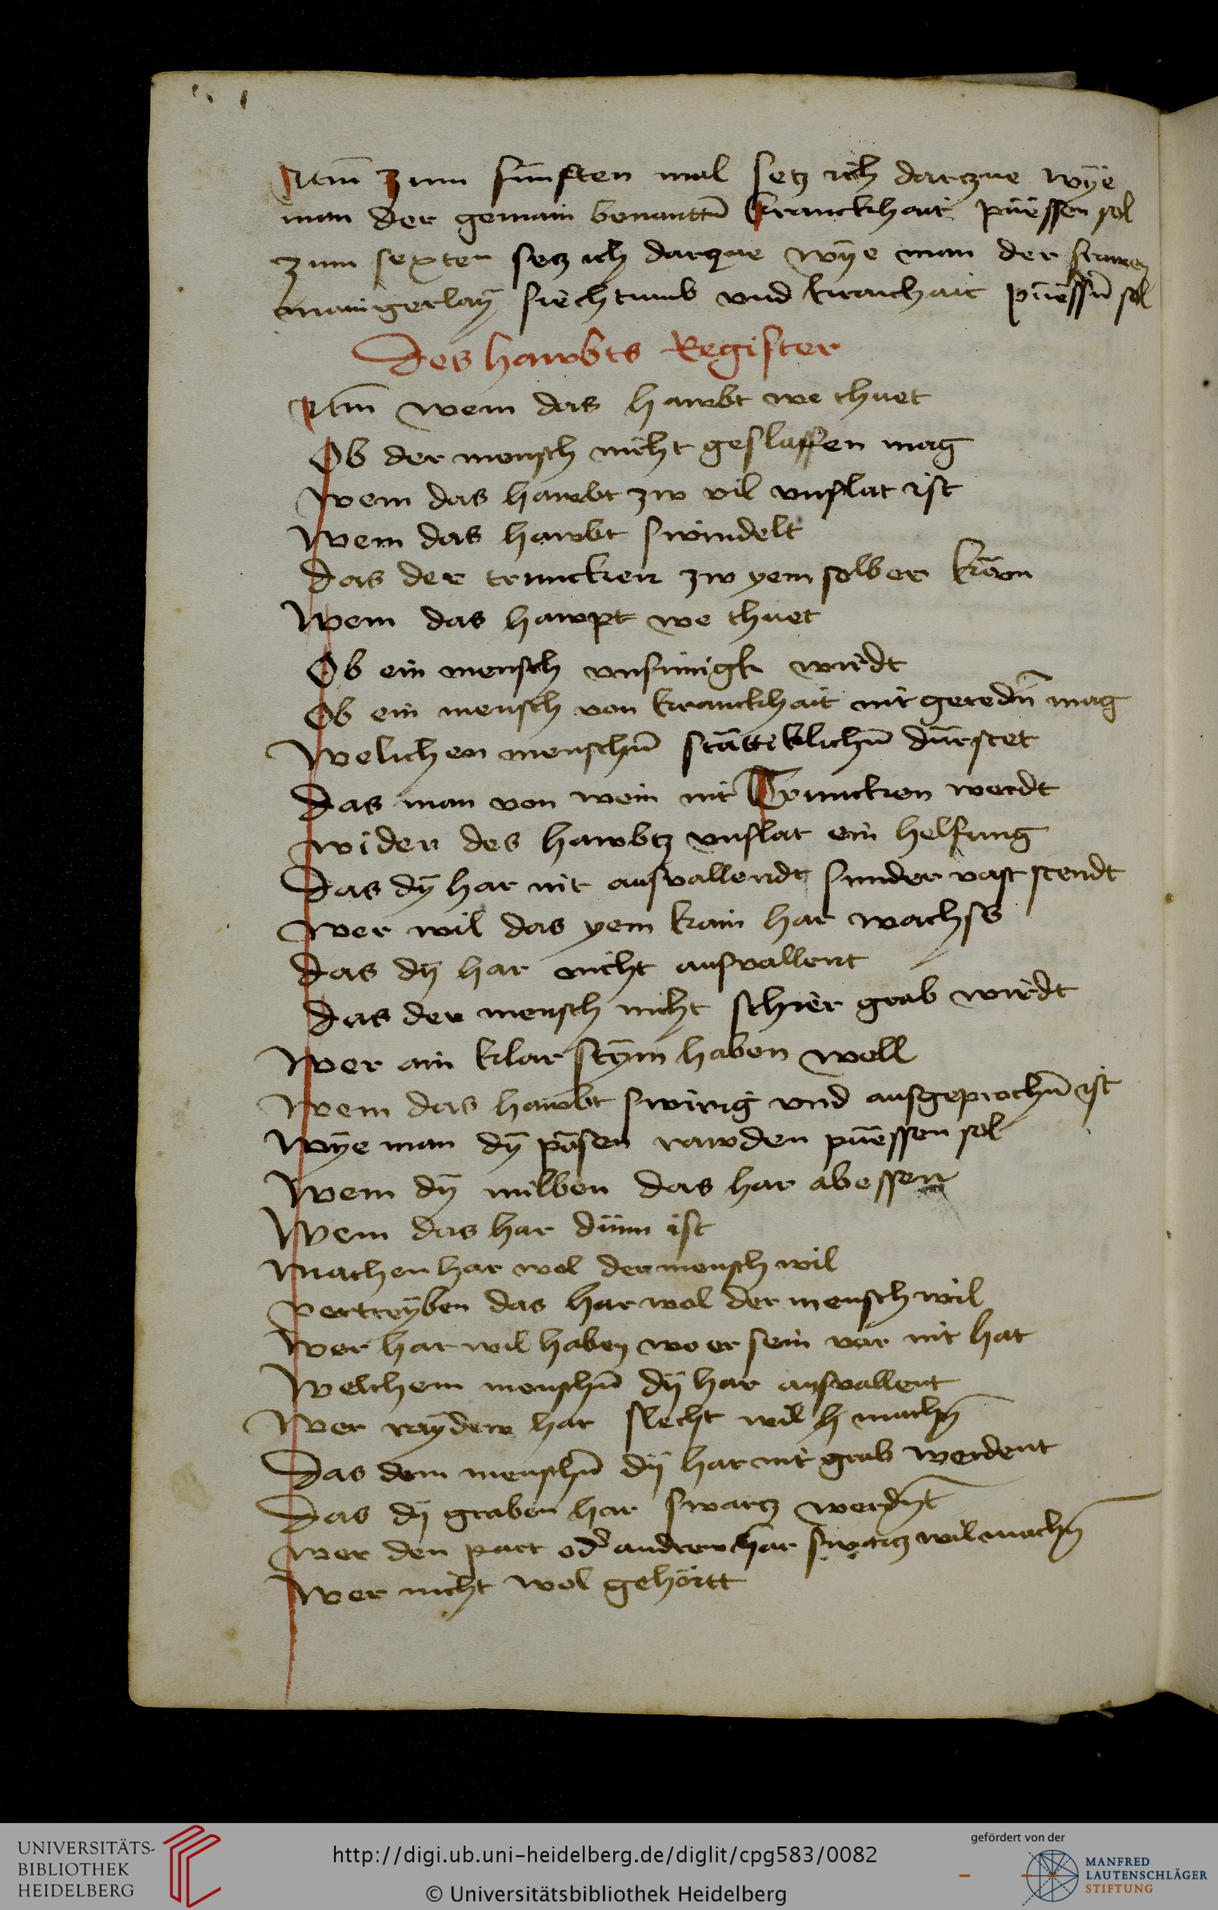 Item zum fünften mal setz ich darzue wÿe
man der gemain benantten kranckhait püessen sol
zum sexten setz ich darzue wÿe man der frawen
manigerlaÿ siechtumb vnd kranchait püessen sol
Des hawbts Register
Item wem das hawbt we thuet
Ob der mensch nicht geslaffen mag
Wem das hawbt zw vil vnflat ist
Wem das hawbt swindelt
Das der truncken zw yem selber köm
Wem das hawpt we thuet
Ob ein mensch vnsinnigk wirdt
Ob ein mensch von kranckhait nit geredn̄ mag
Welichen menschn̄ stättiklichn̄ dürstet
Das man von wein nit Truncken werdt
Wider des hawbtz vnflat ein helfung
Das dÿ har nit ausvallendt sunder vast stendt
Wer wil das yem kain har wachss
Das dÿ har nicht ausvallent
Das der mensch nicht schier grab wirdt
Wer ain klar stÿm haben well
Wem das hawbt swirig vnd ausgeprochn̄ ist
Wÿe man dÿ pösen rawden püessen sol
Wem dÿ milben das har abessen
Wem das har dünn ist
Machen har wol der mensch wil
Vertreÿben das har wol der mensch wil
Wer har wil haben wo er sein vor nit hat
Welchem menschn̄ dÿ har ausvallent
Wer raÿdew har slecht wil machn̄
Das dem menschn̄ dÿ har nit grab werdent
Das dÿ graben har swartz werdn̄t
Wer den part od̄ andrew har swartz wil machn̄
Wer nicht wol gehörtt
UNIVERSITÄTS-
BIBLIOTHEK
HEIDELBERG
http://digi.ub.uni-heidelberg.de/diglit/cpg583/0082
© Universitätsbibliothek Heidelberg
gefördert von der
MANFRED
LAUTENSCHLÄGER
STIFTUNG